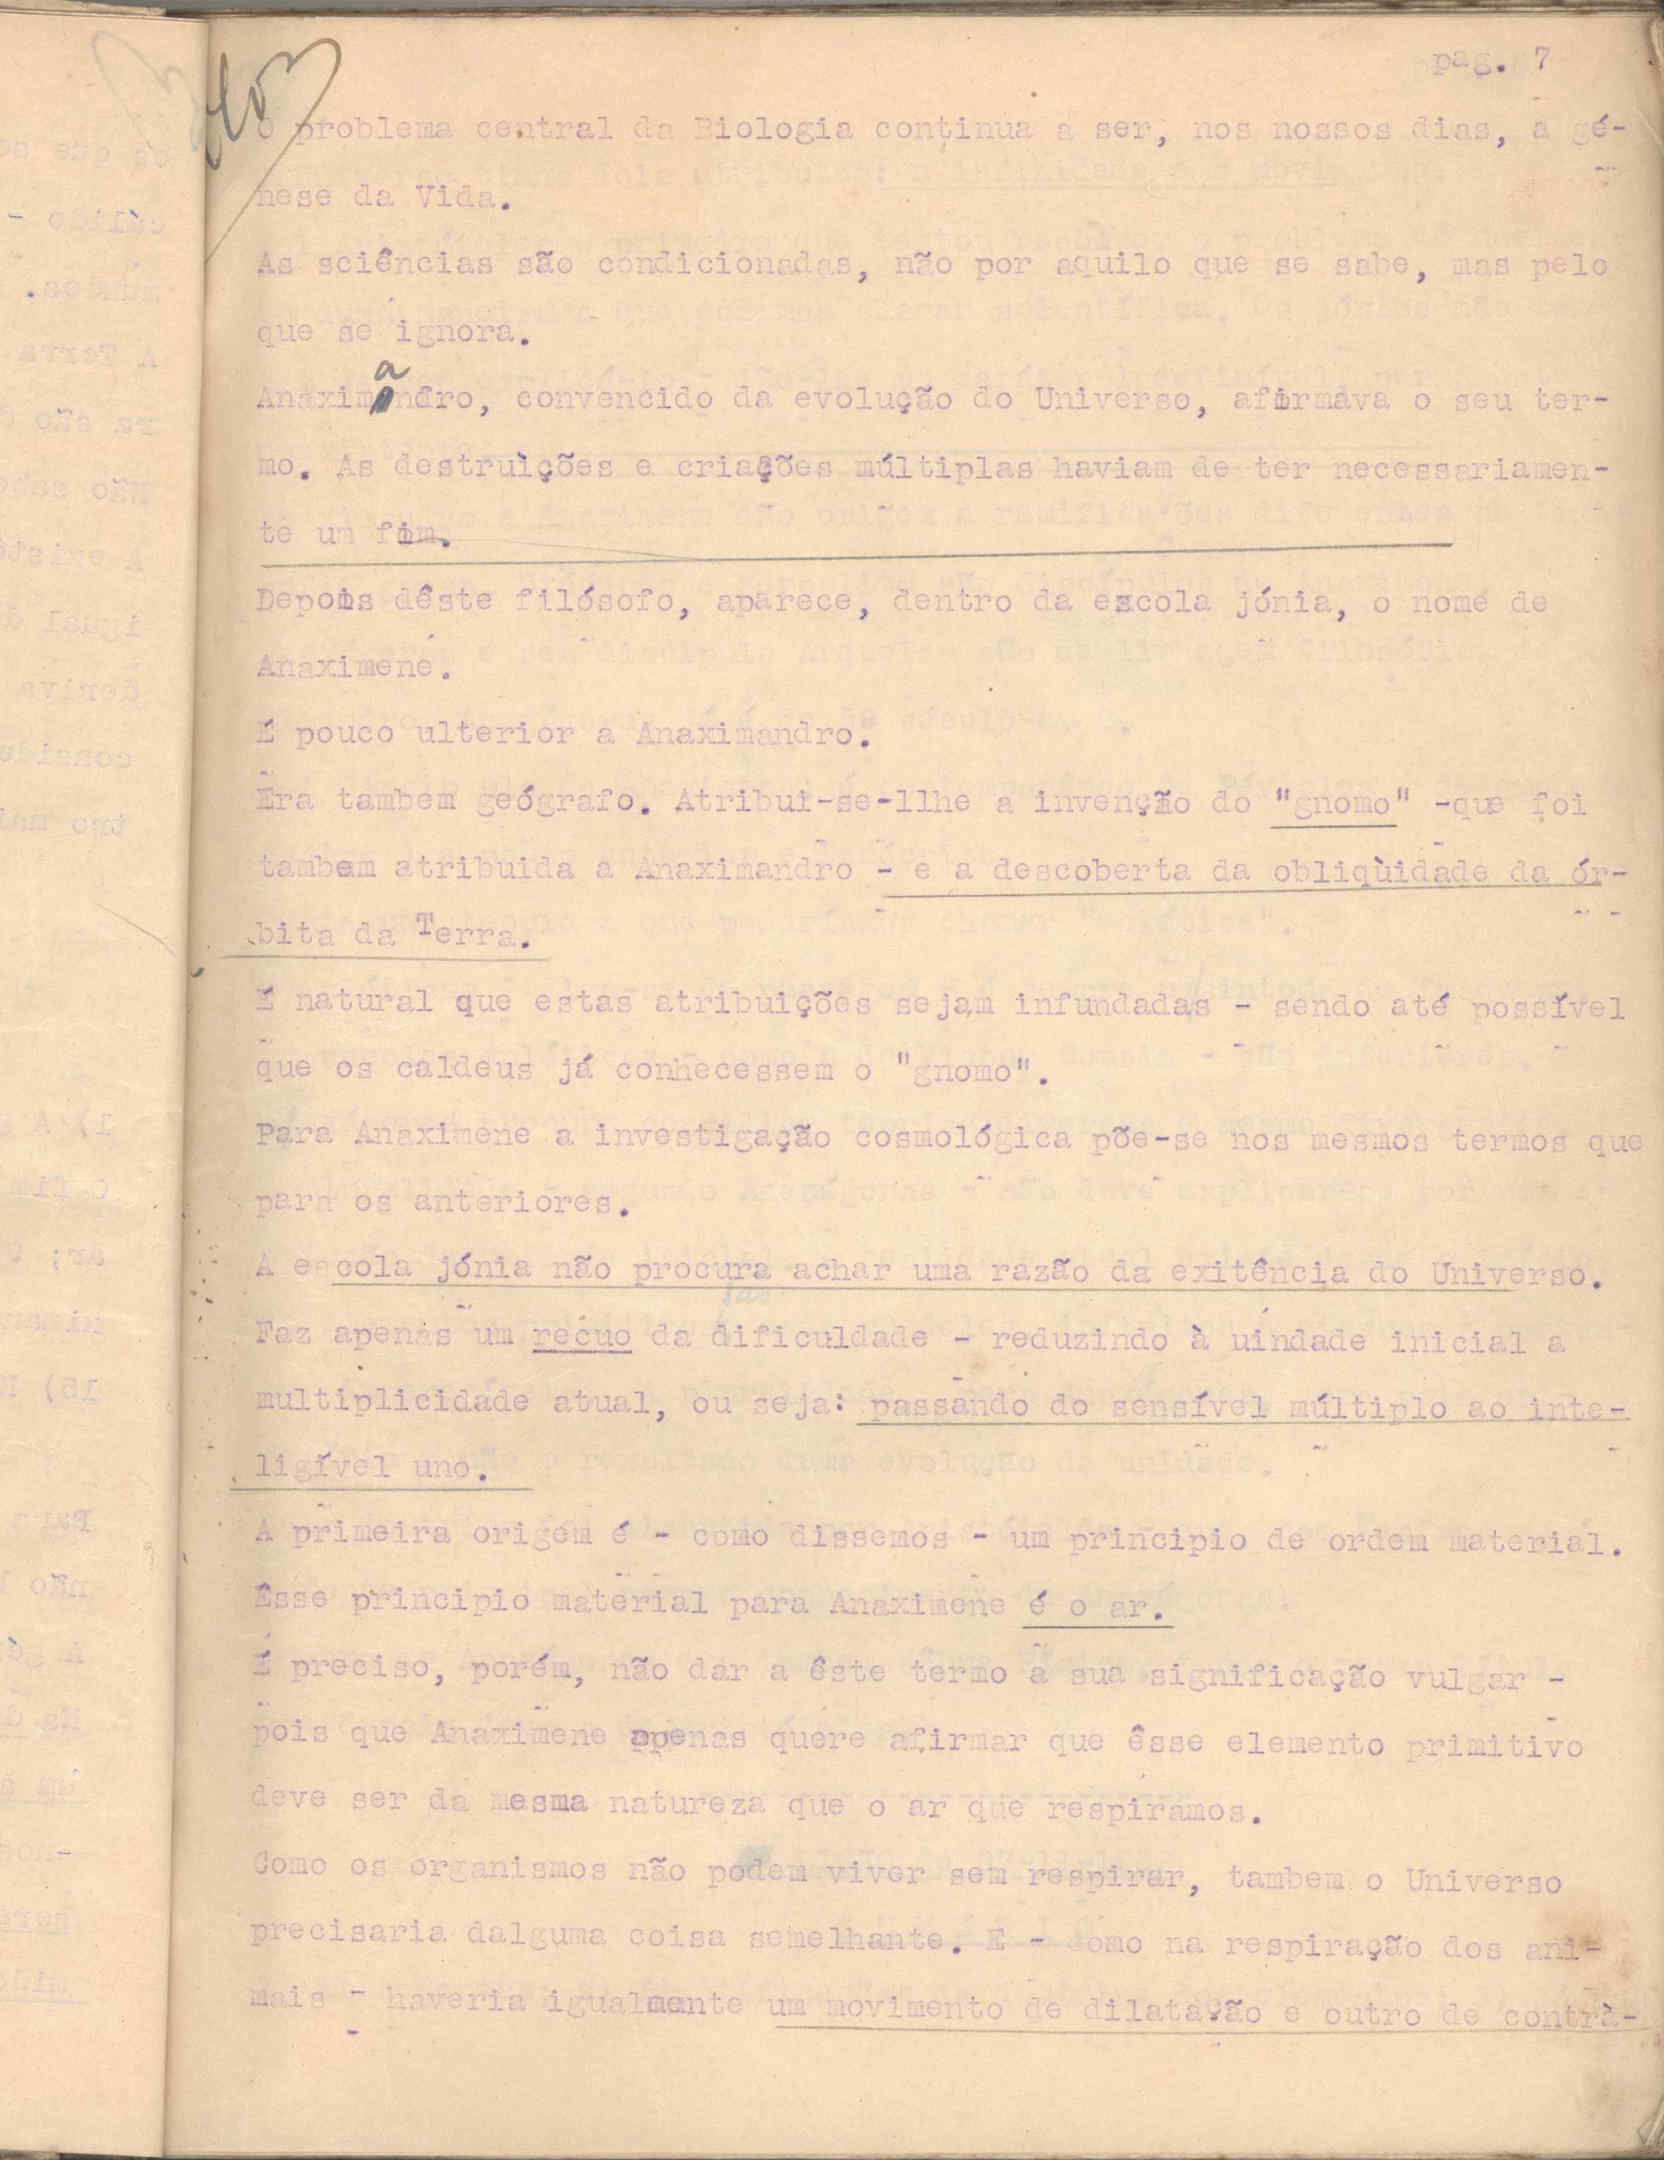 pag. 7
O problema central da Biologia continua a ser, nos nossos dias, a gé-
nese da Vida.
As sciências são condicionadas, não por aquilo que se sabe, mas pelo
que se ignora.
Anaximandro, convencido da evolução do Universo, afirmava o seu ter-
mo. As destruìções e criações múltiplas haviam de ter necessariamen-
te um fim.
Depois dêste filósofo, aparece, dentro da escola jónia, o nome de
Anaximene.
É pouco ulterior a Anaximandro.
Era tambem geógrafo. Atribui-se-llhe a invenção do "gnomo" -que foi
tambem atribuida a Anaximandro - e a descoberta da obliqùidade da ór-
bita da Terra.
É natural que estas atribuições sejam infundadas - sendo até possível
que os caldeus já conhecessem o "gnomo".
Para Anaximene a investigação cosmológica põe-se nos mesmos termos que
para os anteriores.
A escola jónia não procura achar uma razão da exitência do Universo.
Faz apenas um recuo da dificuldade - reduzindo à uindade inicial a
multiplicidade atual, ou seja: passando do sensível múltiplo ao inte-
ligível uno.
A primeira origem é - como dissemos - um principio de ordem material.
Êsse principio material para Anaximene é o ar.
É preciso, porém, não dar a êste termo a sua significação vulgar -
pois que Anaximene apenas quere afirmar que êsse elemento primitivo
deve ser da mesma natureza que o ar que respiramos.
Como os organismos não podem viver sem respirar, tambem o Universo
precisaria dalguma coisa semelhante. E - como na respiração dos ani-
mais - haveria igualmente um movimento de dilatação e outro de contrà-